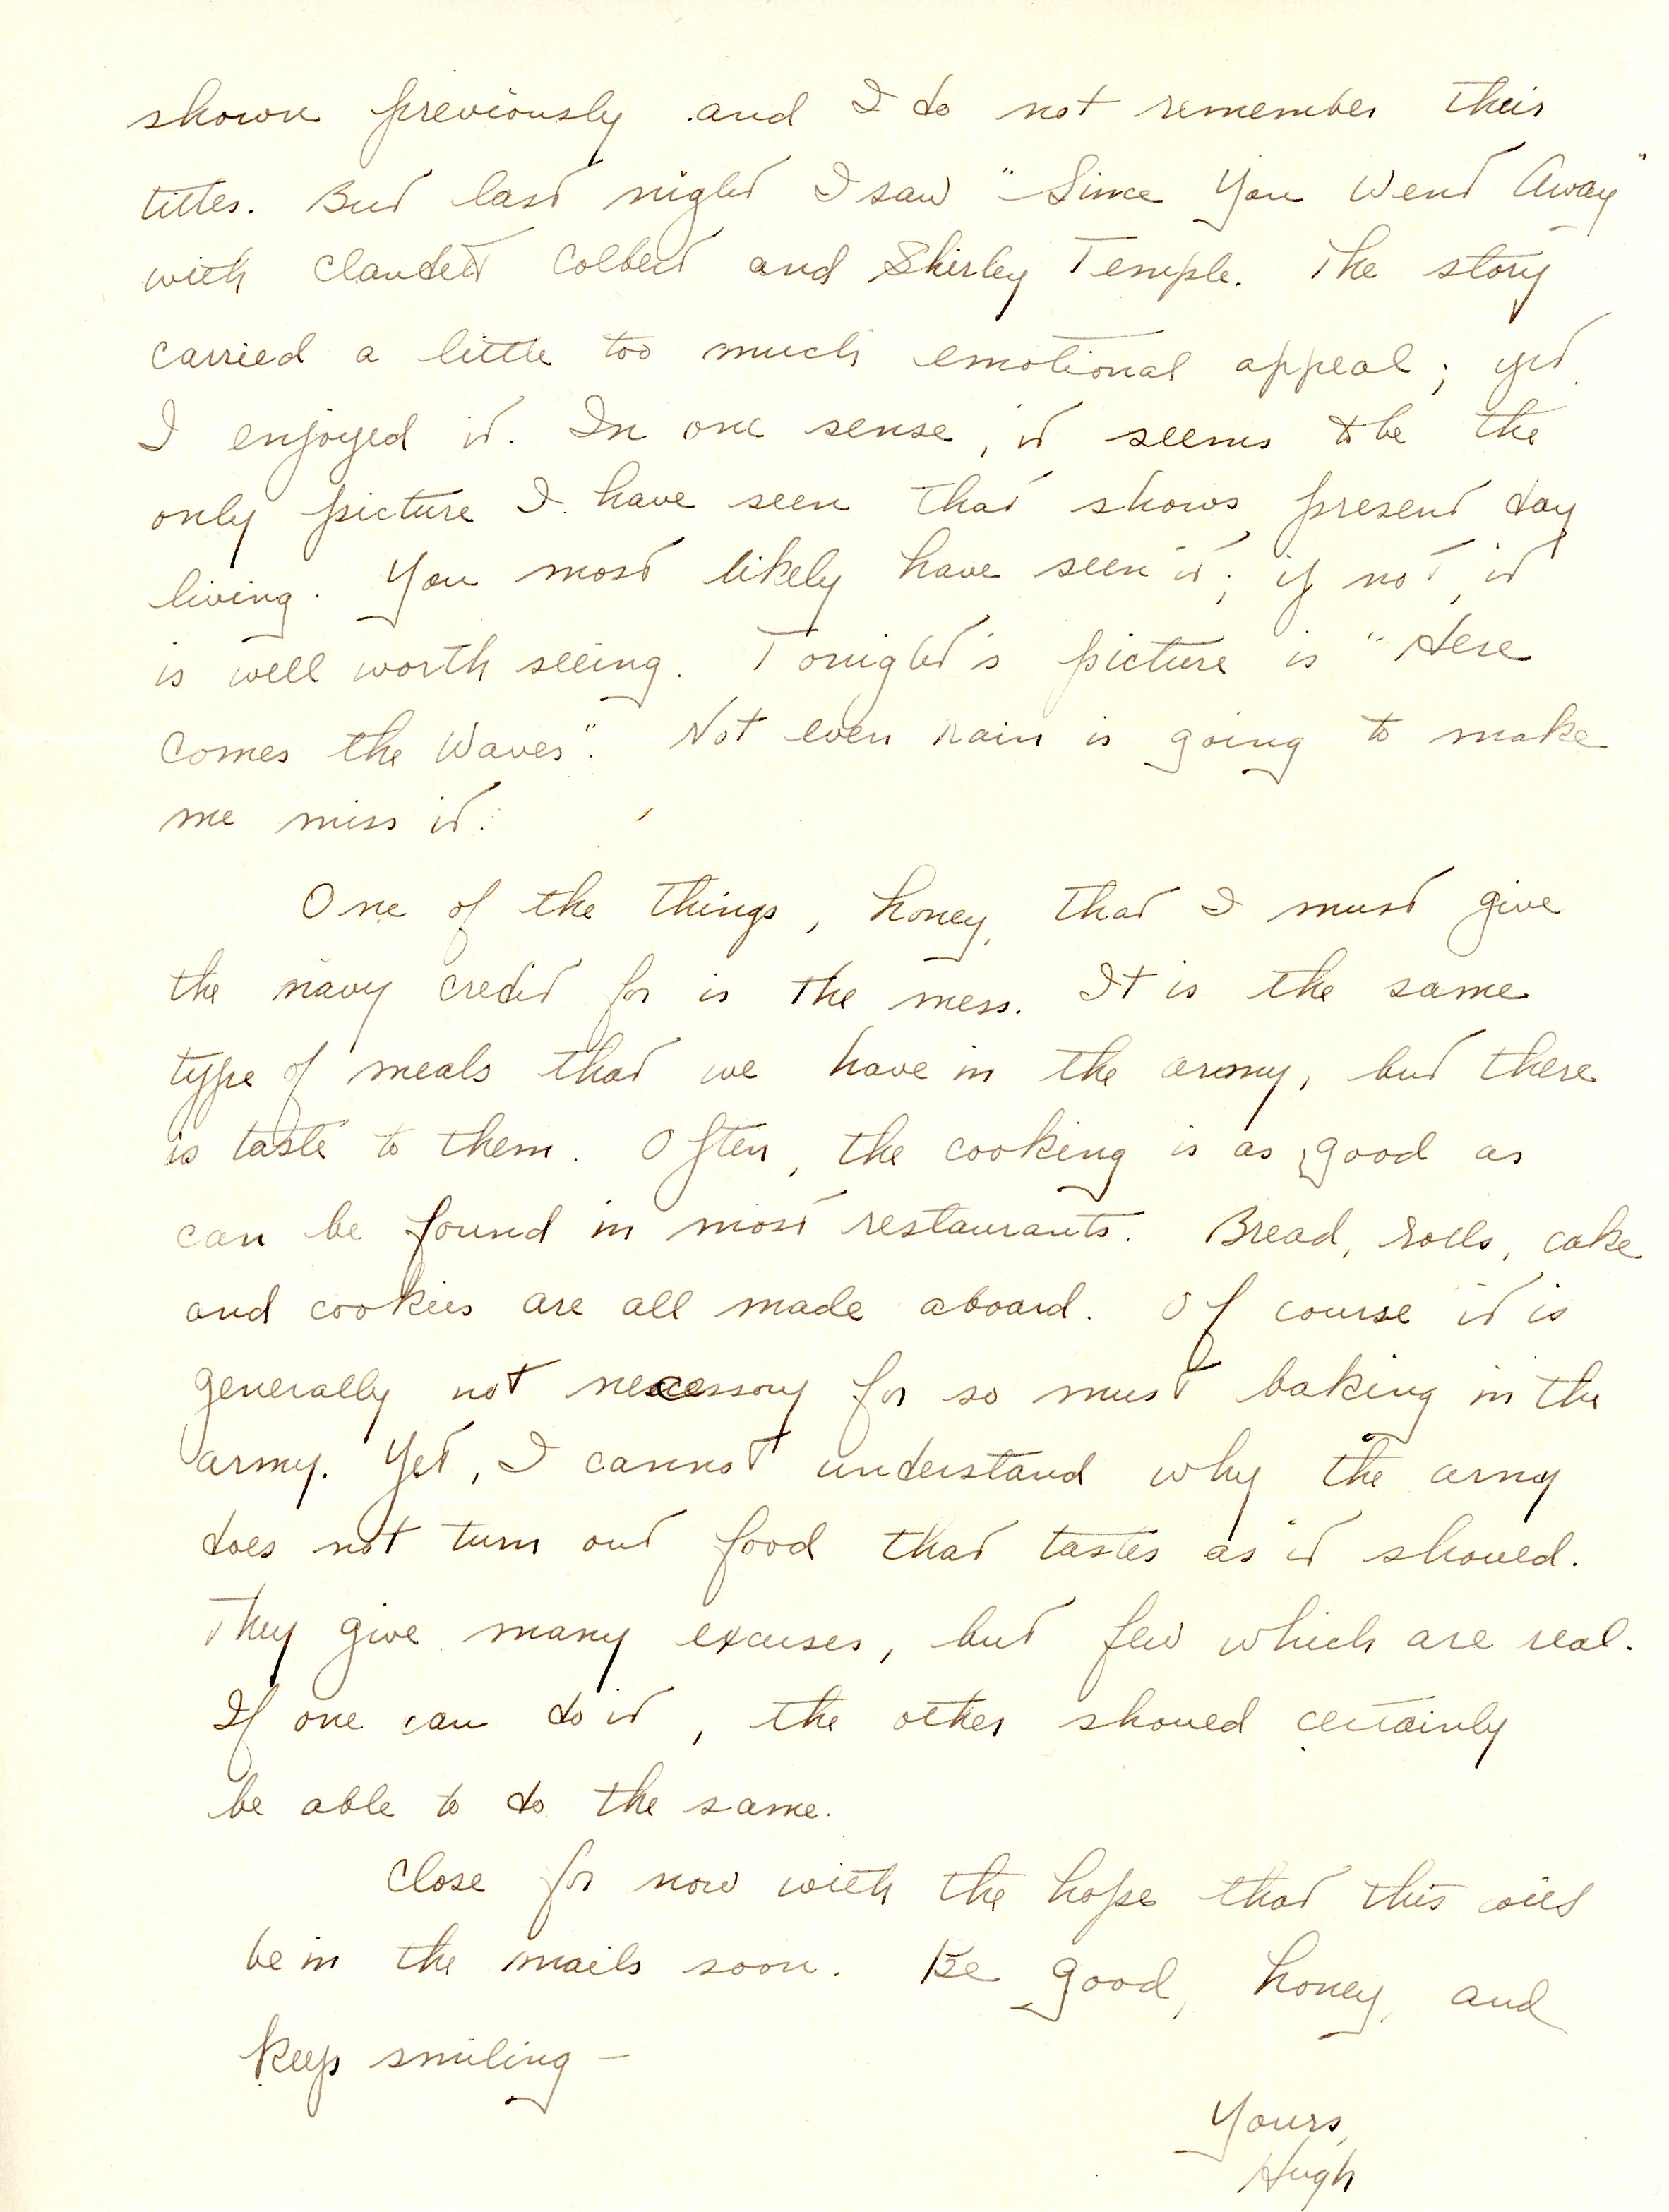 shown previously and I do not remember their
titles. But last night I saw "Since You Went Away"
with Claudett Colbert and Shirley Temple. The story
carried a little too much emotional appeal; yet
I enjoyed it. In one sense, it seems to be the
only picture I have seen that shows present day
living. You most likely have seen it; if not, it
is well worth seeing. Tonight's picture is "Here
Comes the Waves". Not even rain is going to make
me miss it.
One of the things, honey, that I must give
the navy credit for is the mess. It is the same
type of meals that we have in the army, but there
is taste to them. Often, the cooking is as good as
can be found in most restaurants. Bread, rolls, cake
and cookies are all made aboard. Of course it is
generally not necessary for so must baking in the
army. Yet, I cannot understand why the army
does not turn out food that tastes as it should.
They give many excuses, but few which are real.
If one can do it, the other should certainly
be able to do the same.
Close for now with the hope that this will
be in the mails soon. Be good, honey, and
keep smiling –
Yours,
Hugh